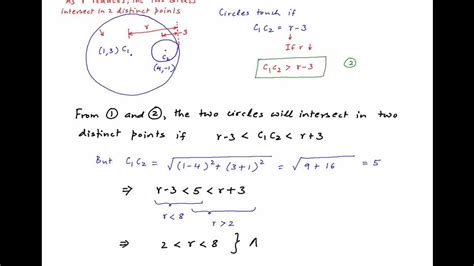 As r reduces, the two circles
intersect in 2 distinct points
r
r-3
(1,3) C₁
C₂
(4,-1)
Circles touch if
C₁C₂ = r-3
If r↓
C₁C₂ > r-3 ②
From ① and ②, the two circles will intersect in two
distinct points if r-3 < C₁C₂ < r+3
But C₁C₂ = √((1-4)² + (3+1)²) = √(9 + 16) = 5
⇒ r-3 < 5 < r+3
r < 8 r > 2
⇒ 2 < r < 8 }